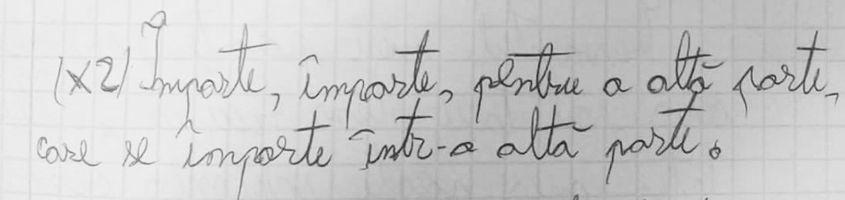 (x2) Împarte, împarte, pentru a altă parte,
care se împarte într-o altă parte.